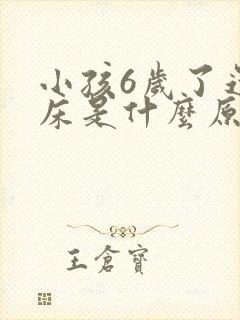 小孩6歲了
床是什麼原
王倉寶